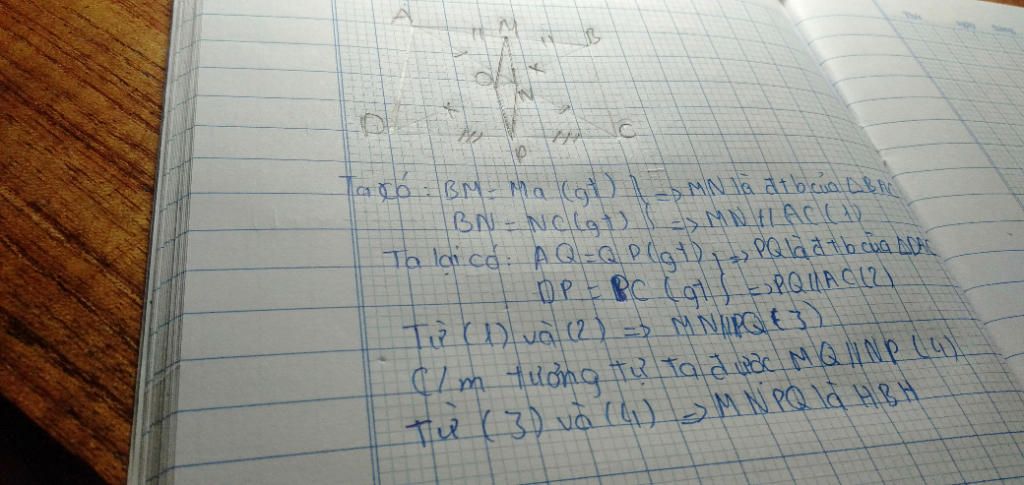 A M B
Q
N
D P C
Ta có: BM = Ma (gt) } => MN là đtb của ΔBAC
BN = NC (gt) } => MN // AC (1)
Ta lại có: AQ = QP (gt) } => PQ là đtb của ΔDAC
DP = PC (gt) } => PQ // AC (2)
Từ (1) và (2) => MN // PQ (3)
C/m tương tự ta được MQ // NP (4)
Từ (3) và (4) => MNPQ là HBH